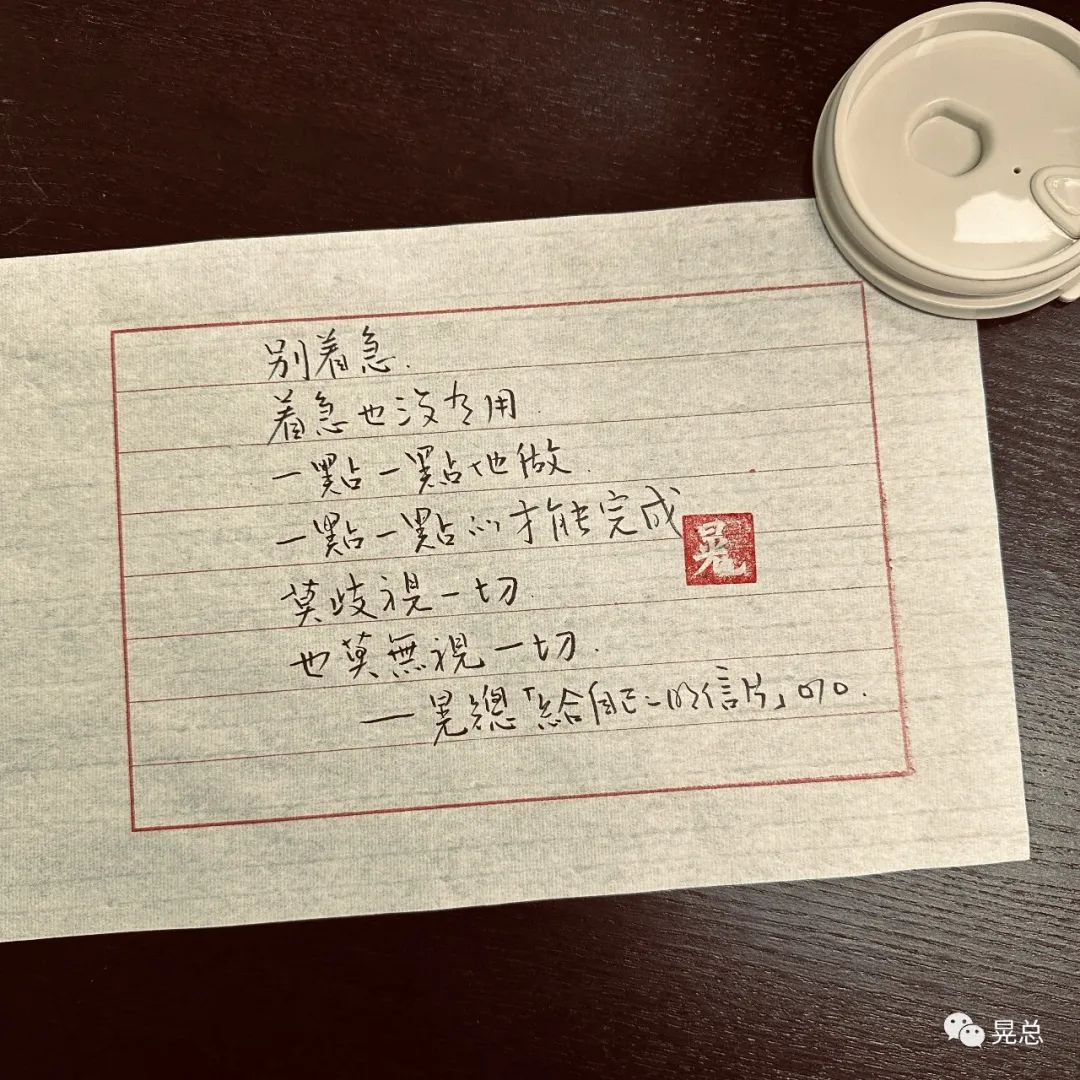 别着急.
着急也没有用.
一點一點地做.
一點一點的才能完成
晃
莫歧視一切.
也莫無視一切.
——晃總「給自己的明信片」070.
晃总